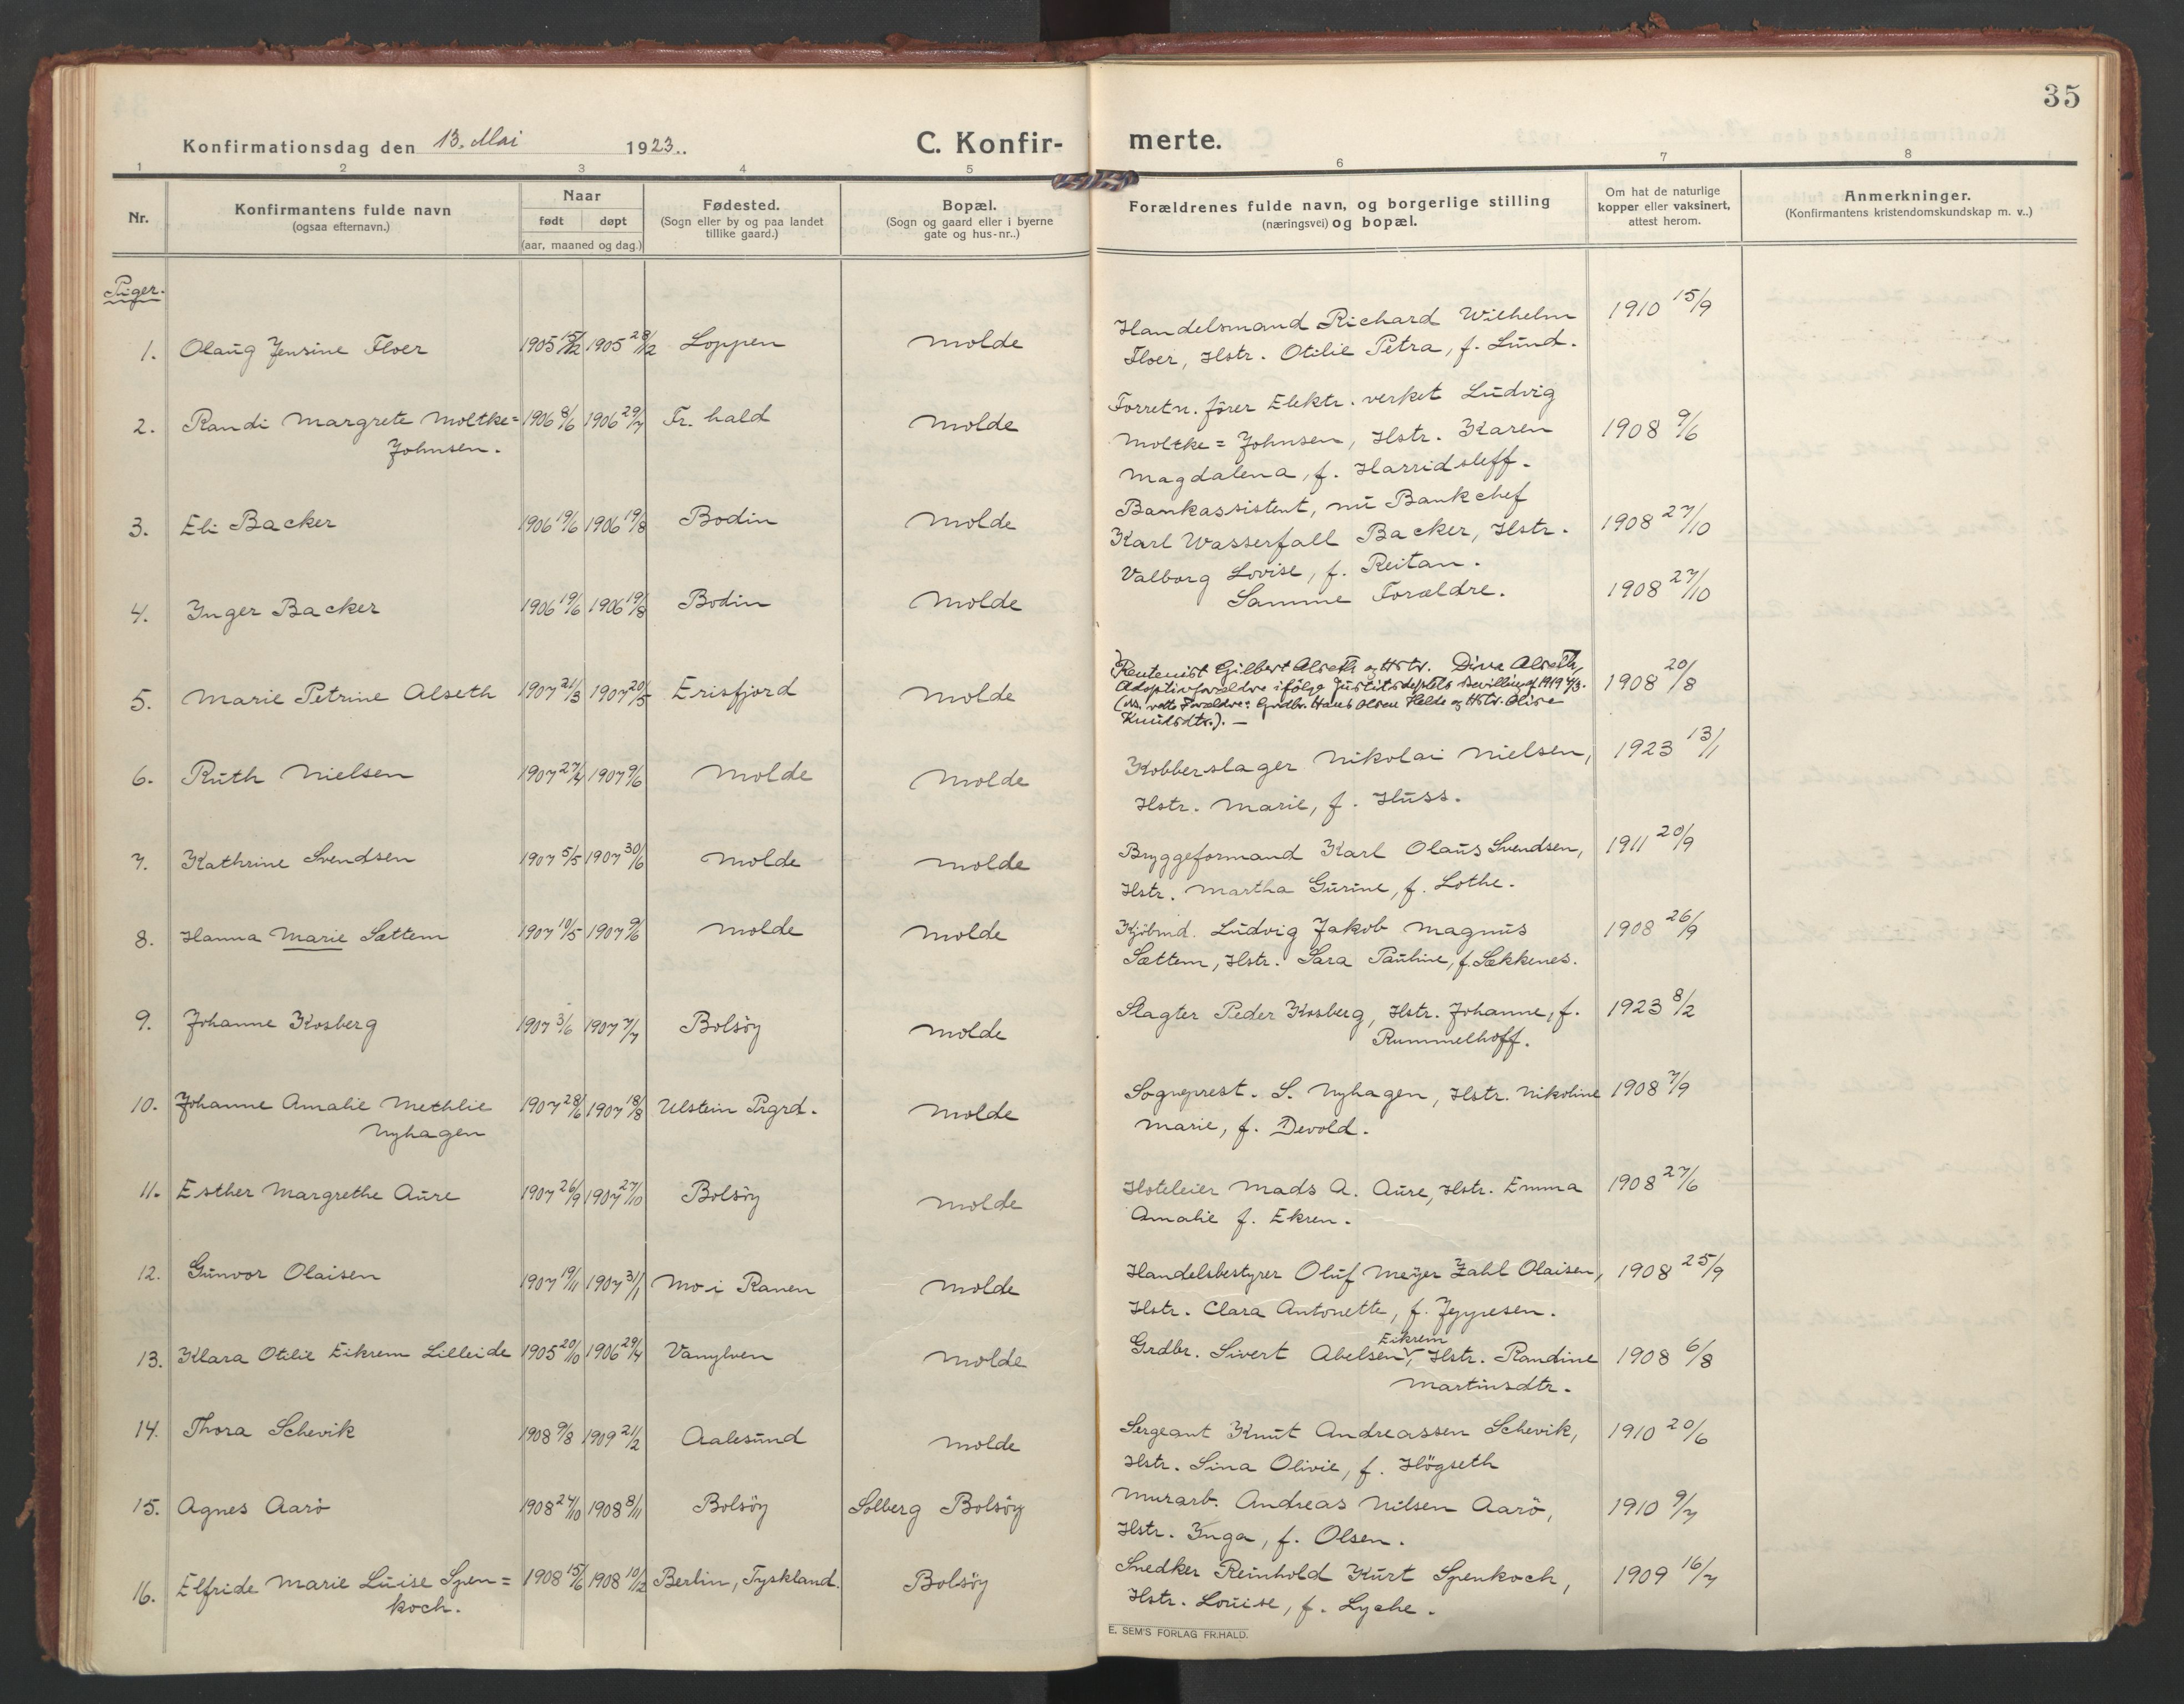 35
Konfirmationsdag den 13. Mai 1923.
C. Konfir-
merte.
1 2 3 4 5 6 7 8
Nr.
Konfirmantens fulde navn
(ogsaa efternavn.)
Naar
født døpt
(aar, maaned og dag.)
Fødested.
(Sogn eller by og paa landet
tillike gaard.)
Bopæl.
(Sogn og gaard eller i byerne
gate og hus-nr..)
Forældrenes fulde navn, og borgerlige stilling
(næringsvei) og bopæl.
Om hat de naturlige
kopper eller vaksinert,
attest herom.
Anmerkninger.
(Konfirmantens kristendomskundskap m. v..)
Piger.
1. Olaug Jensine Floer 1905 15/12 1905 28/12 Loppen Molde
Handelsmand Richard Wilhelm 1910 15/9
Floer, Hstr. Otilie Petra, f. Lund.
2. Randi Margrete Moltke= 1906 8/6 1906 29/7 Fr. hald Molde
Johnsen.
Forretn. fører Elektr. verket Ludvig
Moltke= Johnsen, Hstr. Karen 1908 9/6
Magdalena, f. Harridsleff.
3. Eli Backer 1906 19/6 1906 19/8 Bodin Molde
Bankassistent, nu Bankchef
Karl Wasserfall Backer, Hstr. 1908 27/10
Valborg Lovise, f. Reitan.
4. Inger Backer 1906 19/6 1906 19/8 Bodin Molde
Samme Forældre. 1908 27/10
5. Marie Petrine Alseth 1907 21/3 1907 20/5 Erisfjord Molde
Rentenist Gilbert Alseth og Hstr. Dina Alseth,
Adoptivforældre ifölge Justitsdeptets Bevilling 1919 7/3. 1908 20/8
rette Forældre: Grdbr. Hans Olsen Helde og Hstr. Olise
Knudsdtr.). —
6. Ruth Nielsen 1907 27/4 1907 9/6 Molde Molde
Kobberslager Nikolai Nielsen, 1923 13/1
Hstr. Marie, f. Huss.
7. Kathrine Svendsen 1907 5/5 1907 30/6 Molde Molde
Bryggeformand Karl Olaus Svendsen, 1911 20/9
Hstr. Martha Gurine, f. Lothe.
8. Hanna Marie Sættem 1907 10/5 1907 9/6 Molde Molde
Kjöbmd. Ludvig Jakob Magnus 1908 26/9
Sættem, Hstr. Sara Pauline, f. Sekkenes.
9. Johanne Kosberg 1907 3/6 1907 7/7 Bolsöy Molde
Slagter Peder Kosberg, Hstr. Johanne, f. 1923 8/2
Rummelhoff.
10. Johanne Amalie Methlie 1907 28/6 1907 18/8 Ulstein Prgrd. Molde
Nyhagen
Sogneprest. S. Nyhagen, Hstr. Nikoline 1908 7/9
Marie, f. Devold.
11. Esther Margrethe Aure 1907 26/9 1907 27/10 Bolsöy Molde
Hoteleier Mads A. Aure, Hstr. Emma 1908 27/6
Amalie f. Ekren.
12. Gunvor Olaisen 1907 19/11 1907 31/1 Mo i Ranen Molde
Handelsbestyrer Oluf Meyer Zahl Olaisen, 1908 25/9
Hstr. Clara Antonette, f. Jeppesen.
13. Klara Otilie Eikrem Lilleide 1905 20/10 1906 29/4 Vanylven Molde
Eikrem
Grdbr. Sivert Abelsen, Hstr. Randine 1908 6/8
Martinsdtr.
14. Thora Schevik 1908 9/8 1909 21/2 Aalesund Molde
Sergeant Knut Andreassen Schevik, 1910 20/6
Hstr. Sina Olivie, f. Högseth
15. Agnes Aarö 1908 24/10 1908 8/11 Bolsöy Solberg Bolsöy
Murarb. Andreas Nilsen Aarö, 1910 9/7
Hstr. Inga, f. Olsen.
16. Elfride Marie Luise Spen= 1908 15/6 1908 10/12 Berlin, Tyskland. Bolsöy
koch.
Snedker Reinhold Kurt Spenkoch, 1909 16/7
Hstr. Louise, f. Lyche.
E. SEM'S FORLAG FR.HALD.